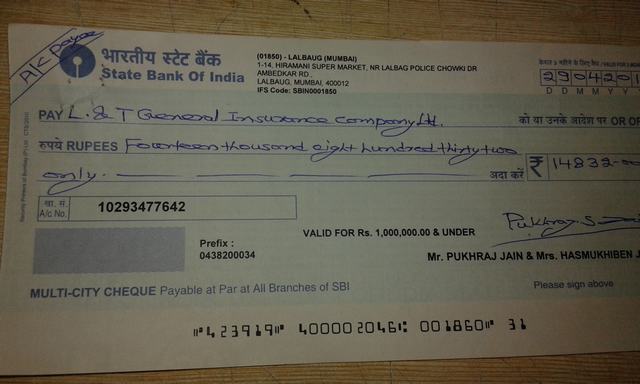 A/c payee
भारतीय स्टेट बैंक
State Bank Of India
(01850) - LALBAUG (MUMBAI)
1-14, HIRAMANI SUPER MARKET, NR LALBAG POLICE CHOWKI DR
AMBEDKAR RD.,
LALBAUG, MUMBAI, 400012
IFS Code: SBIN0001850
290420
D D M M Y Y
PAY L & T General Insurance company Ltd. को या उनके आदेश पर OR
रुपये RUPEES Fourteen thousand eight hundred thirty two
only. अदा करें ₹ 14832-00
खा. सं.
A/c No. 10293477642
Prefix :
0438200034
VALID FOR Rs. 1,000,000.00 & UNDER
Mr. PUKHRAJ JAIN & Mrs. HASMUKHIBEN J
MULTI-CITY CHEQUE Payable at Par at All Branches of SBI
Please sign above
⑈423919⑈ 400002046⑆ 001860⑈ 31